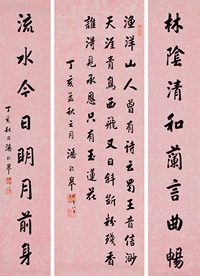 林陰清和蘭言曲暢
漁洋山人曾有詩云蜀王音信渺
天涯青鳥西飛又日斜斷粉殘香
誰得見承恩只有玉蓮花
丁亥孟秋之月潘齡皋
流水今日明月前身
丁亥秋日潘齡皋